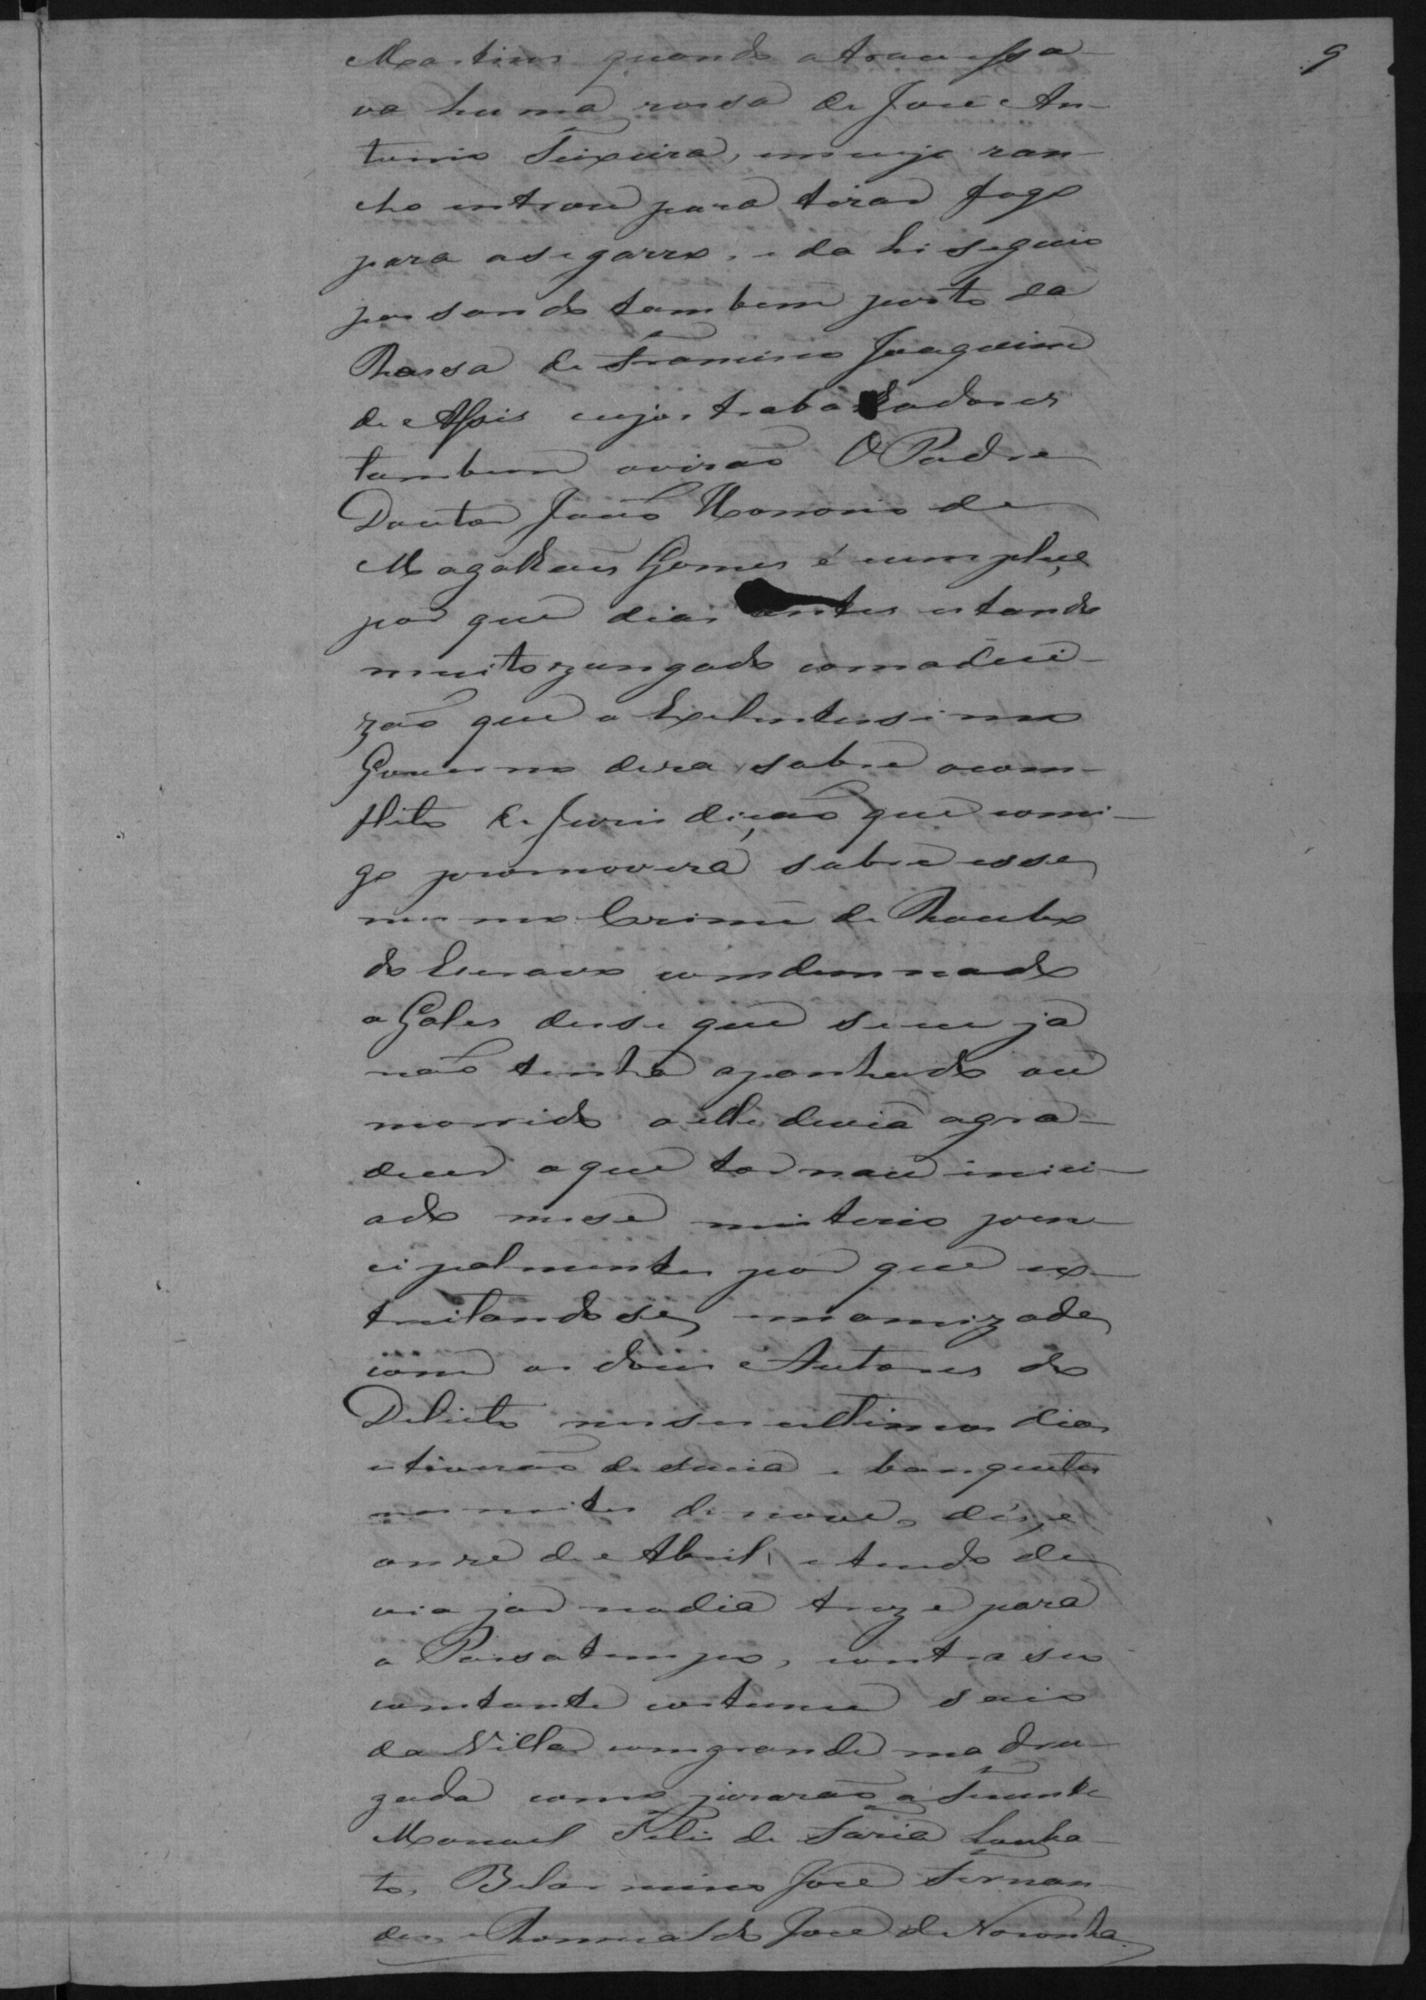 9
Martins quando atravessa-
va huma rossa de José An-
tonio Teixeira, em cujo ran-
cho entrou para tirar fogo
para o sigarro, e da hi seguio
passando tambem perto da
Rossa de Francisco Joaquim
de Assis cujos trabalhadores
tambem ovirão O Padre
Doutor João Honorio de
Magalhaes Gomes é cumplice
por que dias antes estando
muito zangado com a deci-
zão que o Exelentissimo
Governo dera sobre o con-
flito de Jurisdição que comi-
go promoverá sobre esse
mesmo Crime de Roubo
do Escravo comdemnado
a Gales disse que se eu ja
não tinha apanhado ou
morrido a elle devia agra-
decer o que tornou inici-
ado nesse misterio prin-
cipalmente por que ex-
treitando se em amizade
com os dous Autores do
Delicto nesses ultimos dias
estiverão de sucia e banquetes
nas noites de nove, dés, e
onze de Abril, e tendo de
viajar no dia treze para
o Passatempo, contra seu
constante costume saio
da Villa com grande madru-
gada como jurarão o Tenente
Manoel Felis de Faria Lauba-
to, Belarmino José Fernan-
des e Romualdo José de Noronha